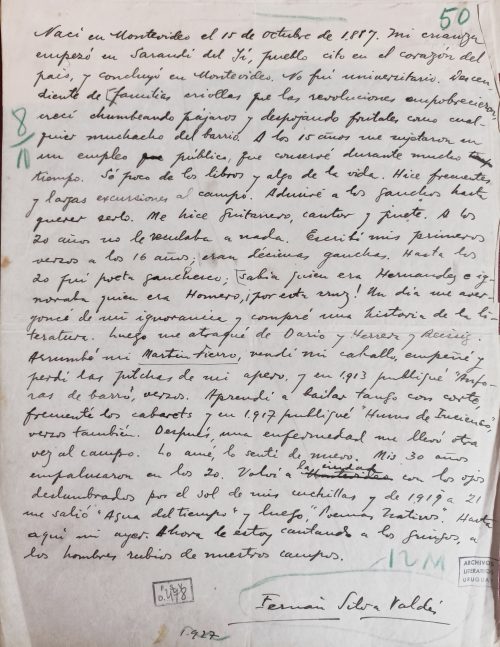 50
Nací en Montevideo el 15 de octubre de 1887. Mi crianza
empezó en Sarandí del Yí, pueblo cito en el corazón del
país, y concluyó en Montevideo. No fuí universitario. Descen
diente de familias criollas que las revoluciones empobrecieron,
crecí chumbeando pájaros y despojando frutales como cual-
quier muchacho del barrio. A los 15 años me sujetaron en
8/11
un empleo público, que conservé durante mucho
tiempo. Sé poco de los libros y algo de la vida. Hice frecuentes
y largas excursiones al campo. Admiré a los gauchos hasta
querer serlo. Me hice guitarrero, cantor y jinete. A los
20 años no le sentaba a nada. Escribí mis primeros
versos a los 16 años; eran décimas gauchas. Hasta los
20 fuí poeta gauchesco; sabía quien era Hernández e ig-
noraba quien era Homero, ¡por esta cruz! Un día me aver-
goncé de mi ignorancia y compré una historia de la li-
teratura. Luego me atraqué de Darío y Herrera y Reissig.
Arrumbé mi Martín Fierro, vendí mi caballo, empeñé y
perdí las pilchas de mi apero, y en 1913 publiqué "Ánfo-
ras de barro", versos. Aprendí a bailar tango con corte,
frecuenté los cabarets y en 1917 publiqué "Humo de Incienso"
versos también. Después, una enfermedad me llevó otra
vez al campo. Lo amé, lo sentí de nuevo. Mis 30 años
empalmaron en los 20. Volví a la ciudad con los ojos
deslumbrados por el sol de mis cuchillas y de 1919 a 21
me salió "Agua del tiempo" y luego, "Poemas Nativos". Hasta
aquí mi ayer. Ahora le estoy cantando a los gringos, a
los hombres rubios de nuestros campos.
12 M
ARCHIVO
LITERARIO
URUGUAY
Fernán Silva Valdés
1927